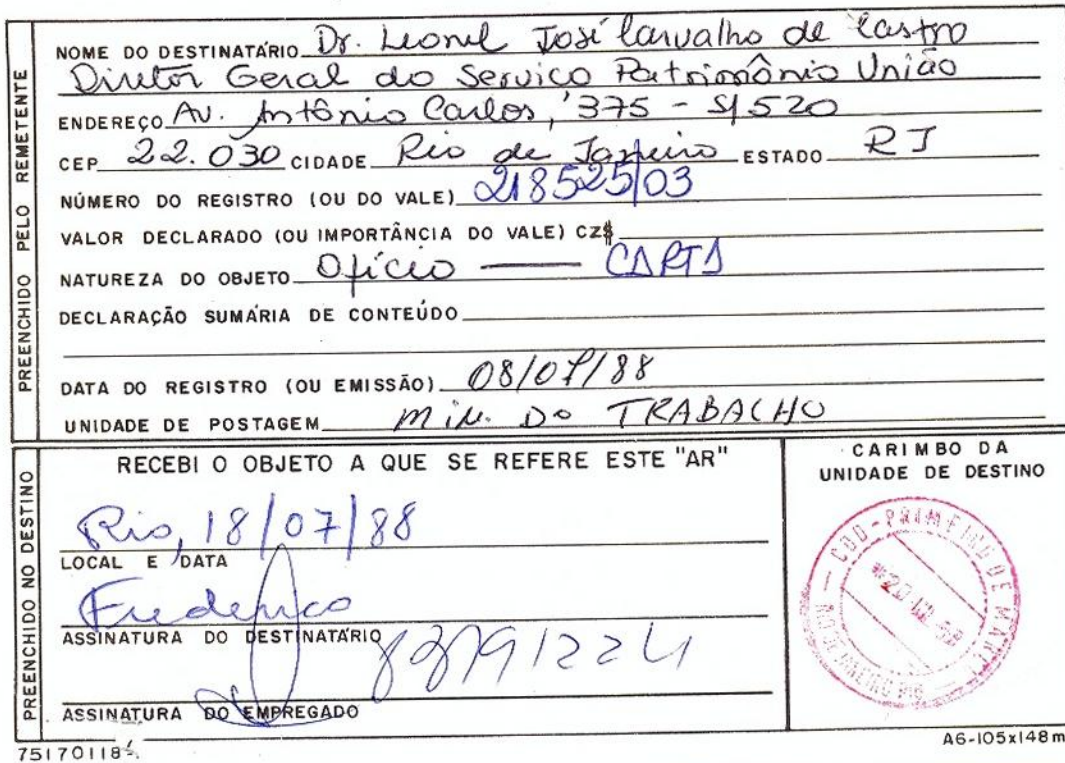 NOME DO DESTINATÁRIO Dr. Leonel José Carvalho de Castro
Diretor Geral do Serviço Patrimônio União
ENDEREÇO Av. Antônio Carlos, 375 - S/520
CEP 22.030 CIDADE Rio de Janeiro ESTADO RJ
NÚMERO DO REGISTRO (OU DO VALE) 218525/03
VALOR DECLARADO (OU IMPORTÂNCIA DO VALE) CZ$
NATUREZA DO OBJETO Ofício — CARTA
DECLARAÇÃO SUMÁRIA DE CONTEÚDO
DATA DO REGISTRO (OU EMISSÃO) 08/07/88
UNIDADE DE POSTAGEM MIN. DO TRABALHO
PREENCHIDO PELO REMETENTE
RECEBI O OBJETO A QUE SE REFERE ESTE "AR"
Rio, 18/07/88
LOCAL E DATA
Frederico
ASSINATURA DO DESTINATÁRIO
ASSINATURA DO EMPREGADO
PREENCHIDO NO DESTINO
CARIMBO DA
UNIDADE DE DESTINO
CDD-PRIMEIRO DE MARÇO
RIO DE JANEIRO
75170118-
A6-105x148m